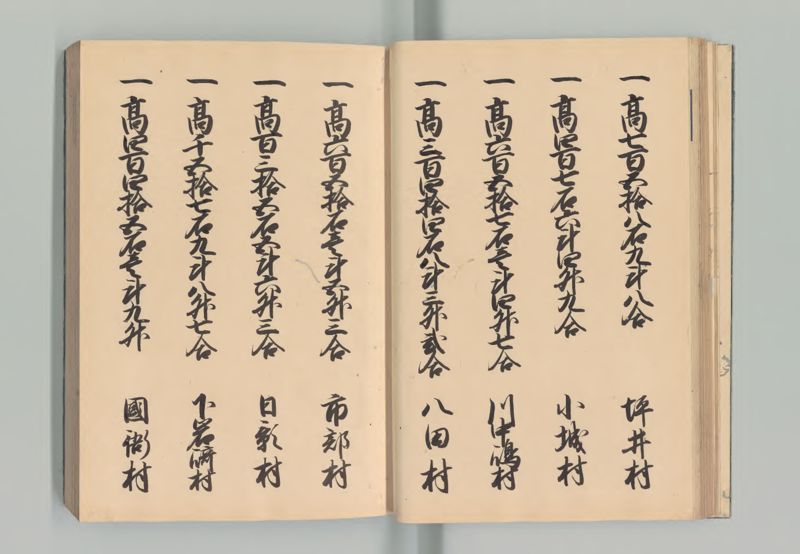 一高七百五拾八石九斗八合 坪井村
一高四百七石六斗四升九合 小城村
一高六百五拾七石壱斗四升七合 川中嶋村
一高三百四拾四石八斗三升弐合 八田村
一高六百五拾石壱斗五升三合 市部村
一高百三拾五石五斗六升三合 日影村
一高十五拾七石九斗八升七合 下岩崎村
一高四百四拾五石壱斗九升 國衙村